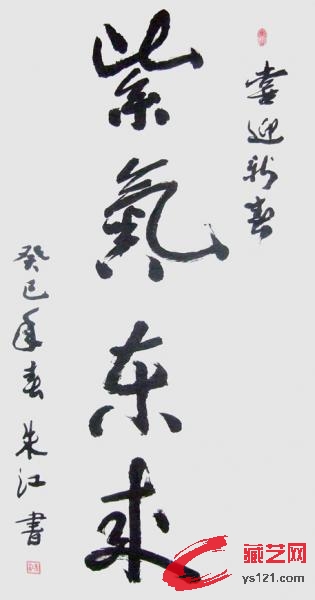 喜迎新春
紫氣东来
癸巳年春 朱江書
藏艺网
ys121.com